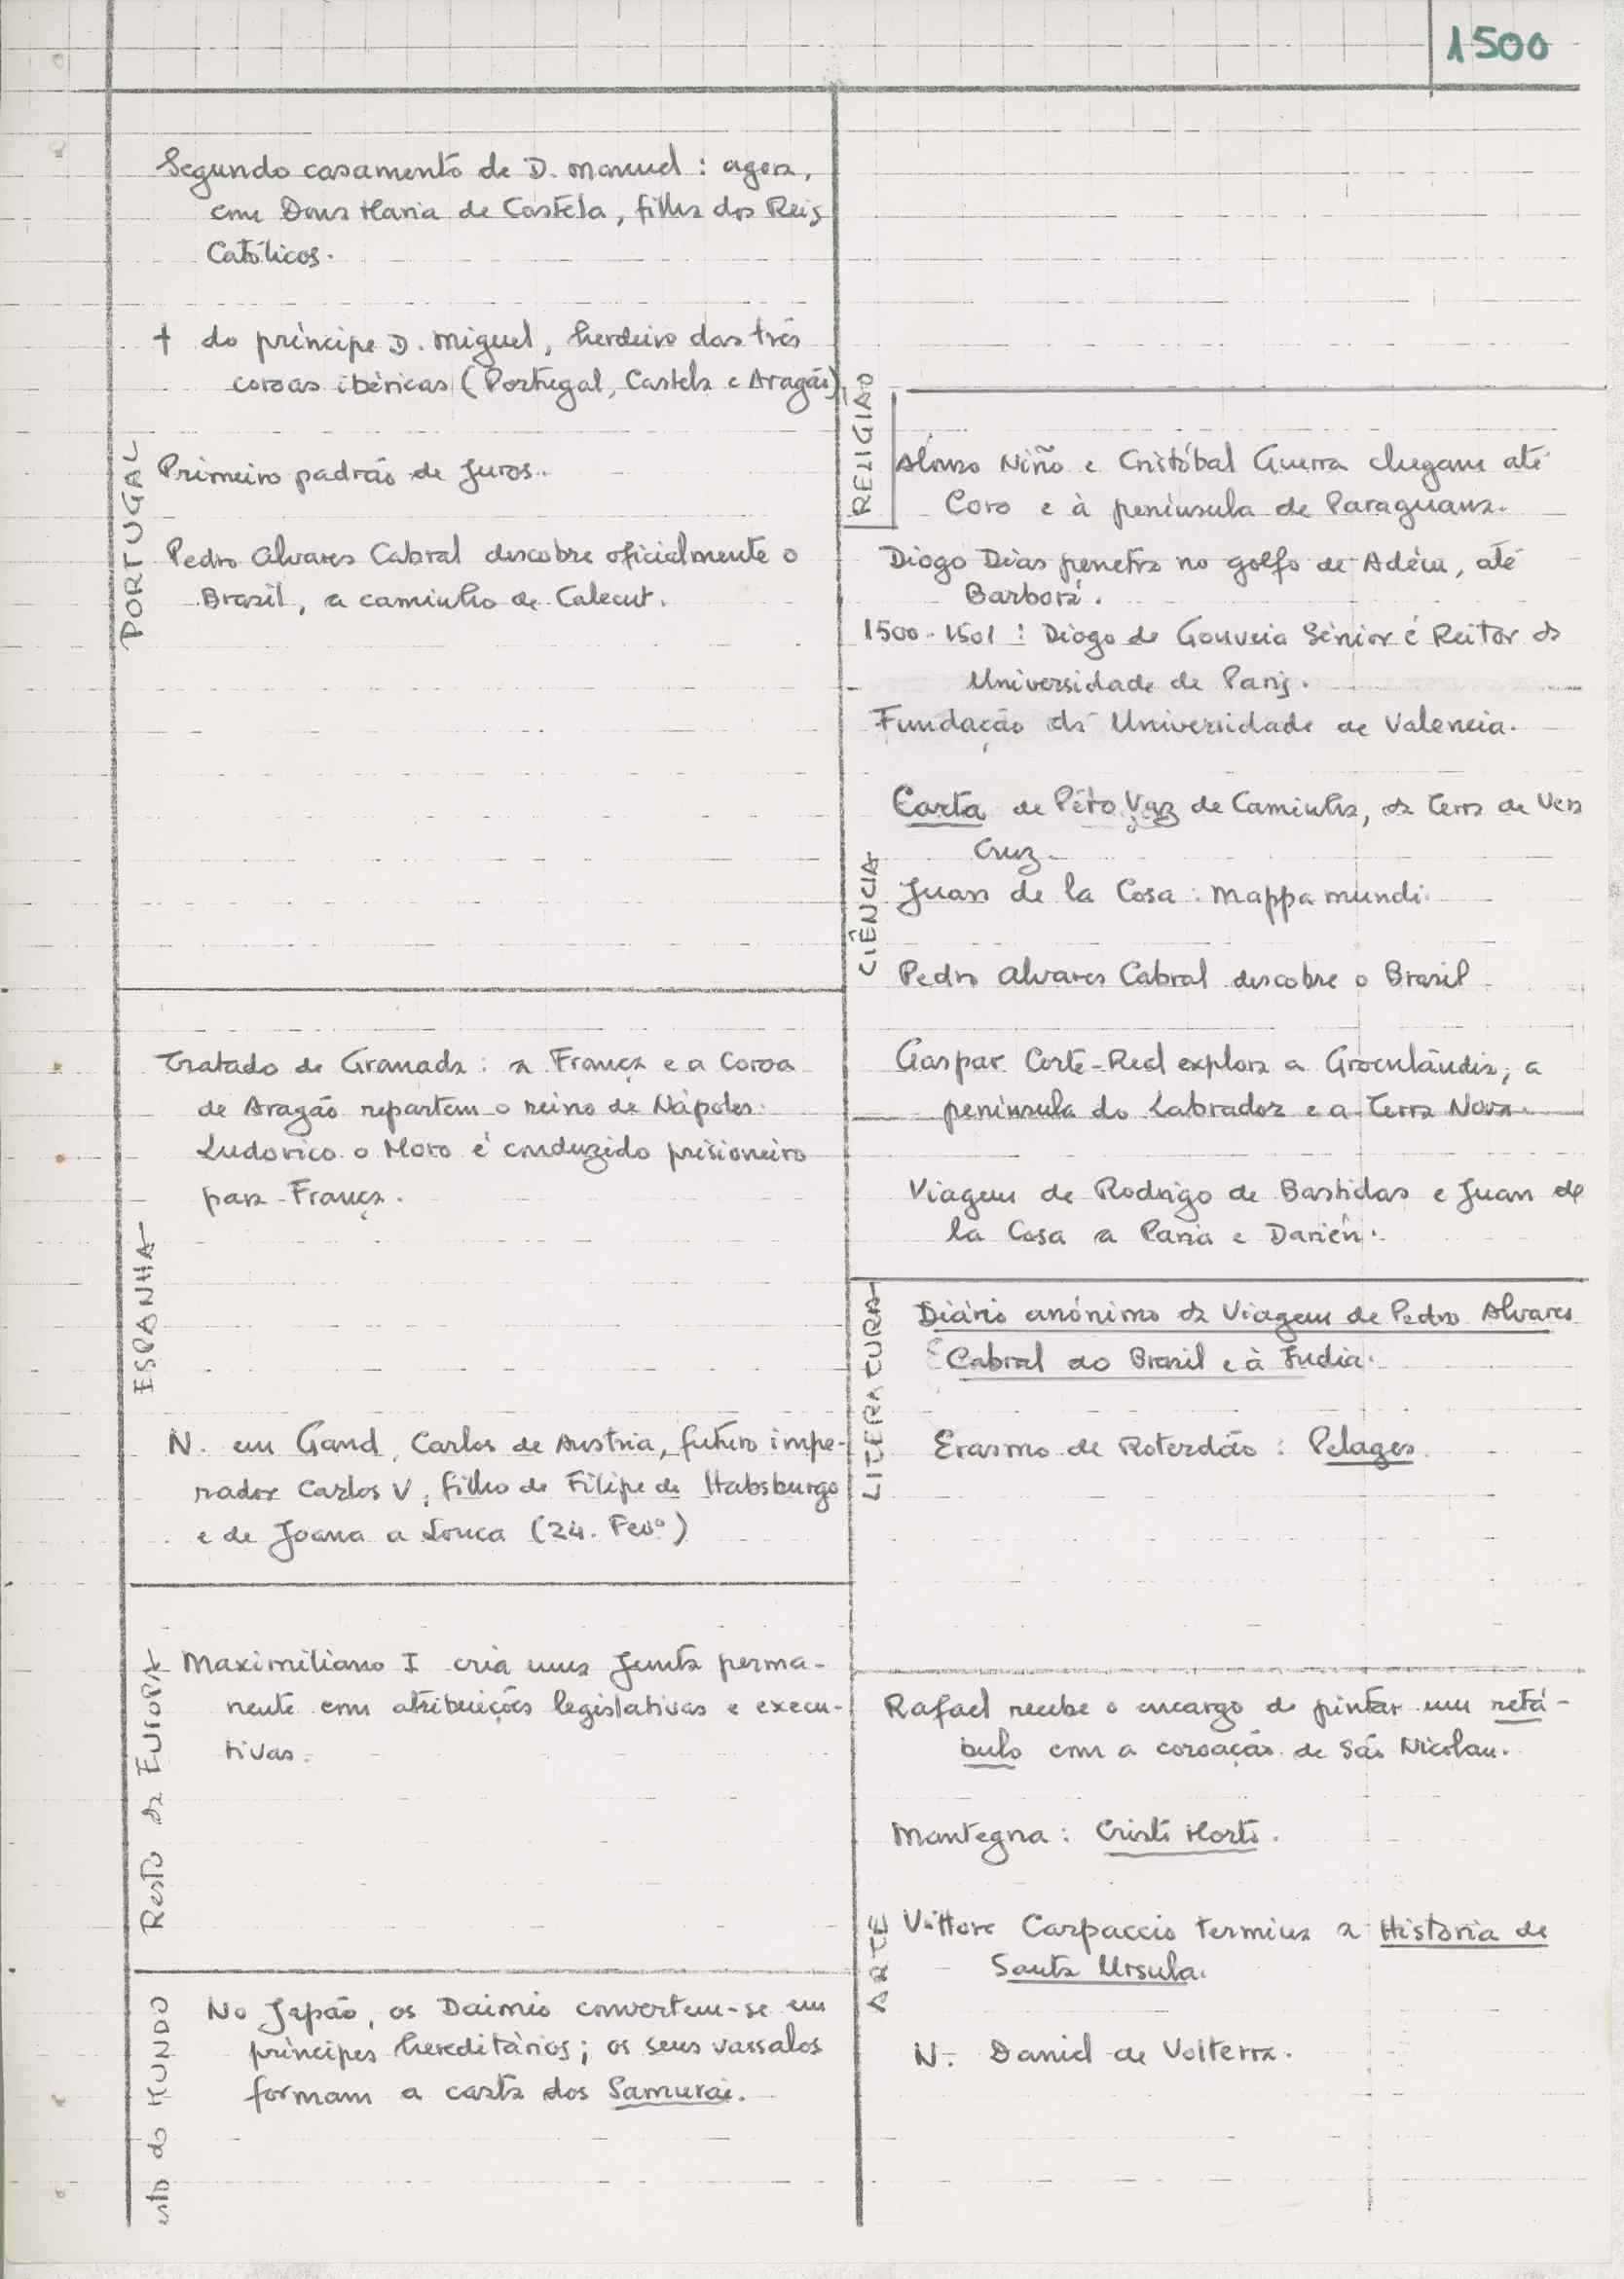 1500
PORTUGAL
Segundo casamento de D. Manuel : agora,
com Dona Maria de Castela, filha dos Reis
Católicos.
† do príncipe D. Miguel, herdeiro das três
coroas ibéricas (Portugal, Castela e Aragão).
Primeiro padrão de Juros.
Pedro Alvares Cabral descobre oficialmente o
Brasil, a caminho de Calecut.
ESPANHA
Tratado de Granada : a França e a Coroa
de Aragão repartem o reino de Nápoles.
Ludovico o Moro é conduzido prisioneiro
para França.
N. em Gand, Carlos de Austria, futuro impe-
rador Carlos V, filho de Filipe de Habsburgo
e de Joana a Louca (24. Fevº)
Resto da EUROPA
Maximiliano I cria uma Junta perma-
nente com atribuições legislativas e execu-
tivas.
esto do MUNDO
No Japão, os Daimio convertem-se em
príncipes hereditários; os seus vassalos
formam a casta dos Samurai.
RELIGIAO
CIÊNCIA
Alonso Niño e Cristóbal Guerra chegam até
Coro e à península de Paraguana.
Diogo Dias penetra no golfo de Adém, até
Barborá.
1500-1501 : Diogo de Gouveia Sénior é Reitor da
Universidade de Paris.
Fundação da Universidade de Valencia.
Carta de Pêro Vaz de Caminha, da Terra de Vera
Cruz.
Juan de la Cosa : Mappa mundi.
Pedro Alvares Cabral descobre o Brasil.
Gaspar Corte-Real explora a Groenlândia, a
península do Labrador e a Terra Nova.
Viagem de Rodrigo de Bastidas e Juan de
la Cosa a Paria e Darién.
LITERATURA
Diário anónimo da Viagem de Pedro Alvares
Cabral ao Brasil e à India.
Erasmo de Roterdão : Pelages.
ARTE
Rafael recebe o encargo de pintar um retá-
bulo com a coroação de São Nicolau.
Mantegna : Cristo Morto.
Vittore Carpaccio termina a Historia de
Santa Ursula.
N. Daniel de Volterra.